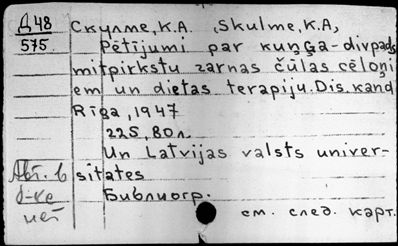 Д48
575.
Скулме, К.А. , Skulme, K.A,
Pētījumi par kuņģa-divpads
mitpirkstu zarnas čūlas cēloņi
em un dietas terapiju. Dis. kand
Rīga, 1947
225, 80 л.
Un Latvijas valsts univer-
sitates
Библиогр.
см. след. карт.
Авт. в
б-ке
нет